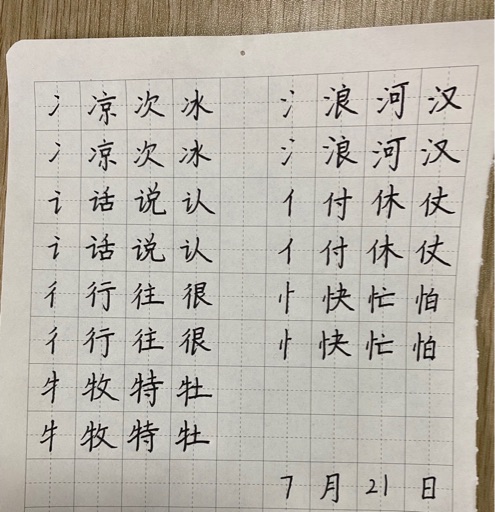 冫凉次冰 氵浪河汉
冫凉次冰 氵浪河汉
讠话说认 亻付休仗
讠话说认 亻付休仗
彳行往很 忄快忙怕
彳行往很 忄快忙怕
牜牧特牡
牜牧特牡
7月21日